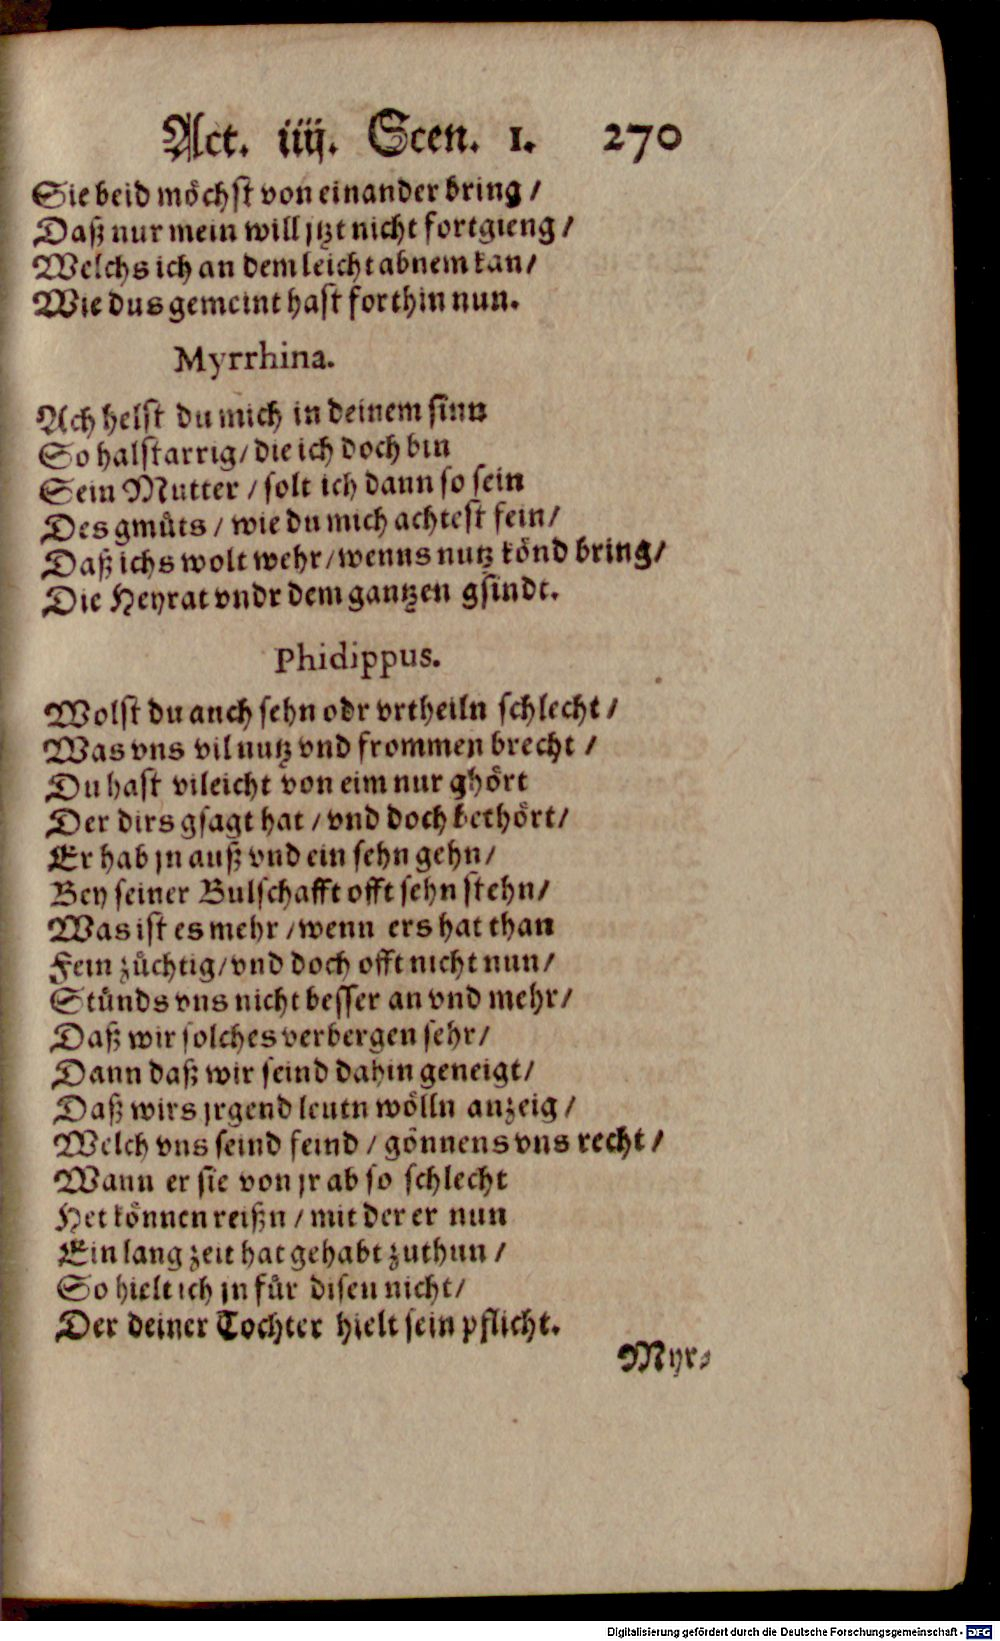 Act. iiij. Scen. 1. 270
Sie beid möchst von einander bring /
Daß nur mein will jtzt nicht fortgieng /
Welchs ich an dem leicht abnem kan /
Wie dus gemeint hast forthin nun.
Myrrhina.
Ach helst du mich in deinem sinn
So halstarrig / die ich doch bin
Sein Mutter / solt ich dann so sein
Des gmüts / wie du mich achtest fein /
Daß ichs wolt wehr / wenns nutz könd bring /
Die Heyrat vndr dem gantzen gsindt.
Phidippus.
Wolst du auch sehn odr vrtheiln schlecht /
Was vns vil nutz vnd frommen brecht /
Du hast vileicht von eim nur ghört
Der dirs gsagt hat / vnd doch bethört /
Er hab jn auß vnd ein sehn gehn /
Bey seiner Bulschafft offt sehn stehn /
Was ist es mehr / wenn ers hat than
Fein züchtig / vnd doch offt nicht nun /
Stünds vns nicht besser an vnd mehr /
Daß wir solches verbergen sehr /
Dann daß wir seind dahin geneigt /
Daß wirs jrgend leutn wölln anzeig /
Welch vns seind feind / gönnens vns recht /
Wann er sie von jr ab so schlecht
Het können reißn / mit der er nun
Ein lang zeit hat gehabt zuthun /
So hielt ich jn für disen nicht /
Der deiner Tochter hielt sein pflicht.
Myr-
Digitalisierung gefördert durch die Deutsche Forschungsgemeinschaft - DFG